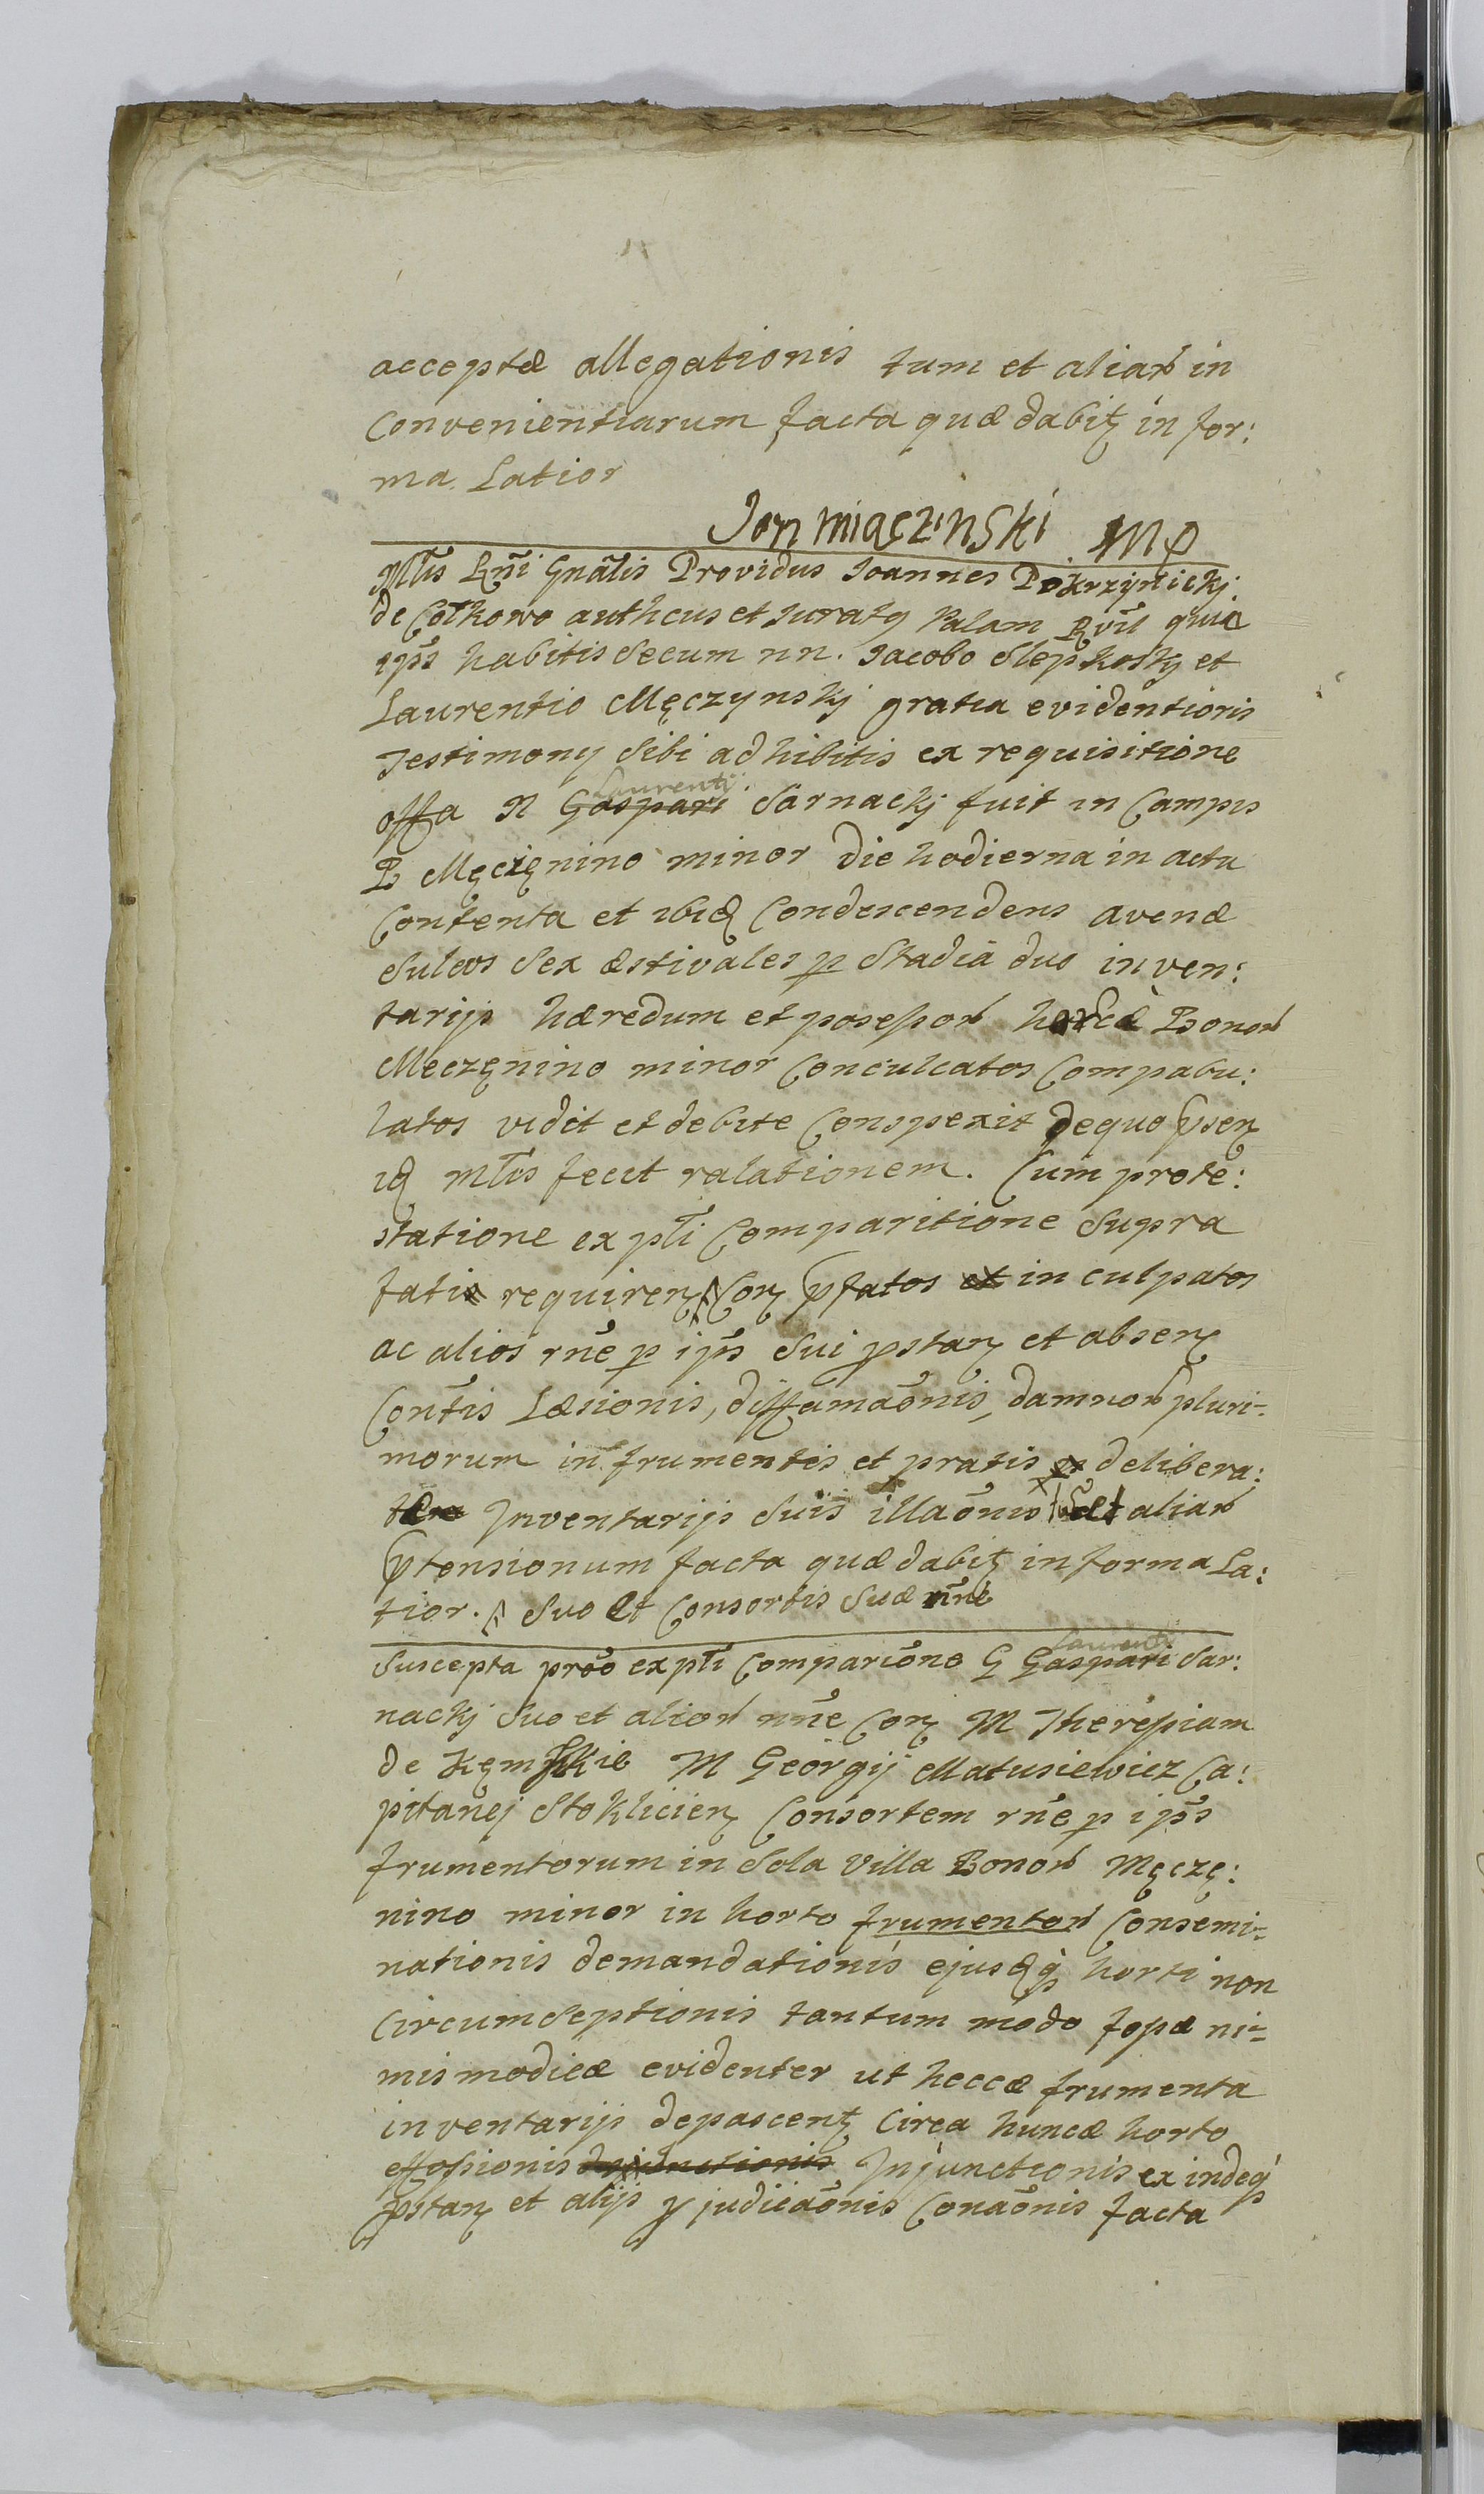 acceptæ allegationis tum et aliar in
Convenientiarum facta quæ dabitz in for:
ma Latior
Jan miączinski mp
Mtis Rni Gnalis Providus Joannes Pokrzynickj
de Cołkowo authcus et Juratq palam Rvit quia
ips habitis secum nn. Jacobo Slepkoskj et
Laurentio Męczynskj gratia evidentioris
Testimony sibi adhibitis ex requisitione
Laurentij
offa N Gaspari Sarnackj fuit in Campis
B Męczęnino minor die hodierna in actu
Contenta et ibid Condescendens avenæ
Sulcos Sex æstivales p Stadia duo inven:
tarijs hæredum et possessor horcæ Bonor
Meczęnino minor Conculcatos Compabu:
latos vidit et debite Conspexit de quo psen
id Mtis fecit ralationem. Cum prote:
statione ex pti Comparitione Supra
fati requiren Con pfatos et inculpatos
ac alios rne p ips sui pstan et absen
Contis Læsionis, diffamaonis, damnor pluri-
morum in frumentis et pratis deliberа:
Inventarijs Suis illaonis et aliar
ptensionum facta quæ dabitz in forma La:
tior. Suo et Consortis suæ nne
Laurenti
Suscepta proo ex pti Comparione G Gaspari Sar:
nackj suo et alior nne Con M Theresiam
de Kęmskie M Georgij Matusiewicz Ca:
pitanej Stoklicien Consortem rne p ips
frumentorum in Sola Villa Bonor Męczę:
nino minor in horto frumentor Consemi-
nationis demandationis ejusdq horti non
Circumseptionis tantum modo fossæ ni-
mis modicæ evidenter ut heccæ frumenta
inventarijs depascentz Circa huncæ horto
effossionis Injunctionis exindeq
pstan et alijs p judicaonis Conaonis facta